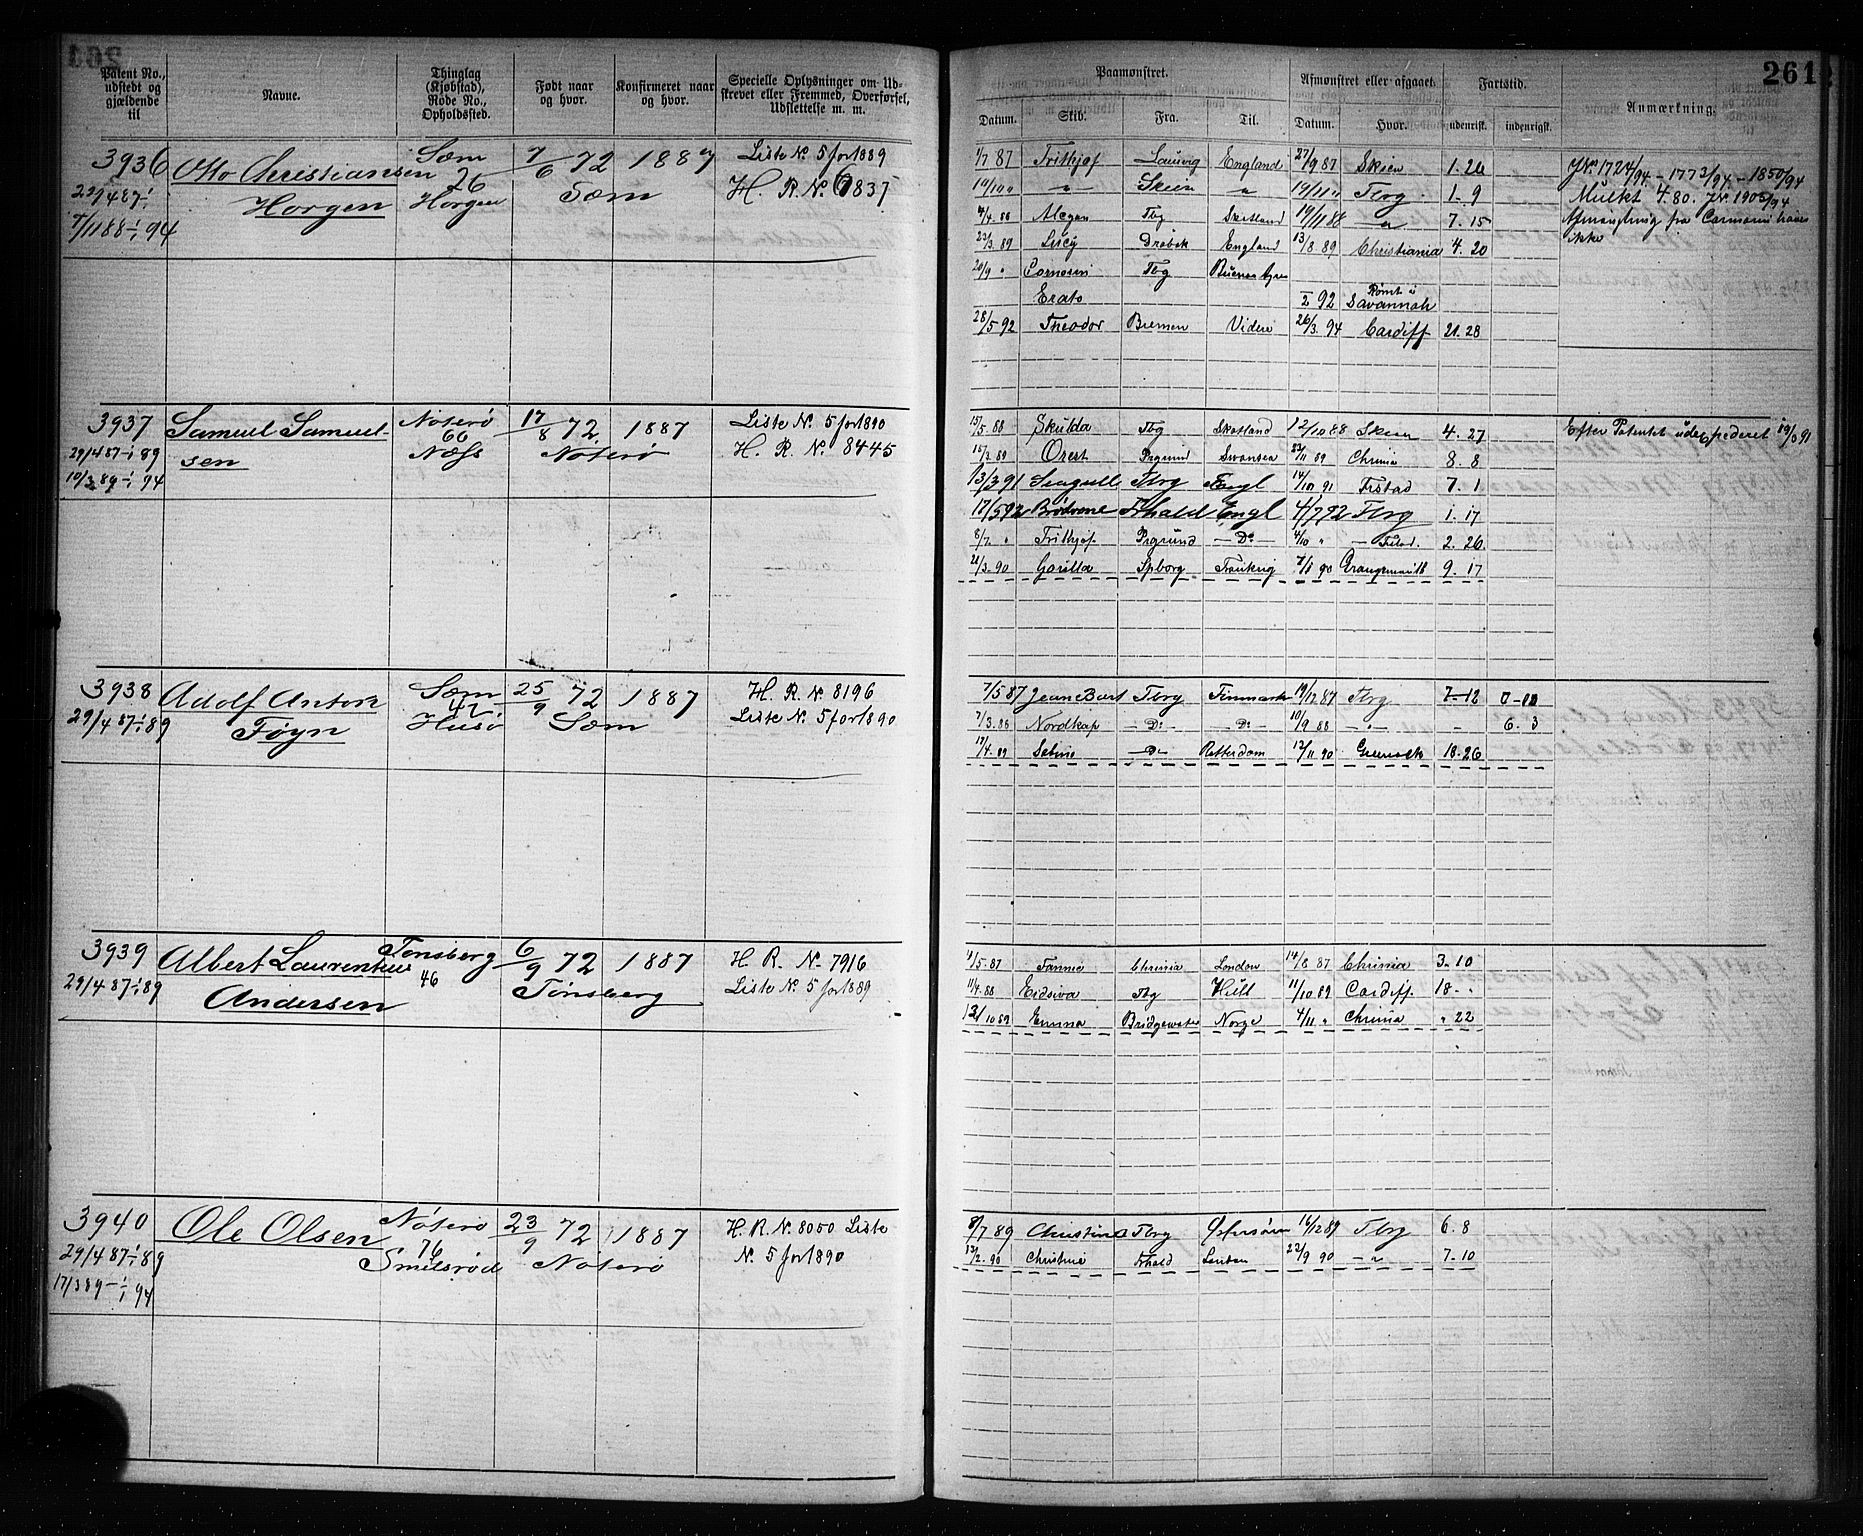 261
Patent No., udstedt og gjældende til
Navne.
Thinglag (Kjøbstad), Rode No., Opholdssted.
Født naar og hvor.
Konfirmeret naar og hvor.
Specielle Oplysninger om Udskrevet eller Fremmed, Overførsel, Udslettelse m. m.
Paamønstret.
Afmønstret eller afgaaet.
Fartstid.
Anmærkning.
Datum. Skib. Fra. Til. Datum. Hvor. udenrigsk. indenrigsk.
3936 Otto Christiansen Sæm 7/6 72 1887 Liste No. 5 for 1889
29/4 87 - 1/1 Horgen 26 Horgen Sæm H. R. No. 6837
7/11 88 - 1/1 94
1/7 87 Frithjof Laurvig England 27/9 87 Skien 1. 26
19/10 " - " - Skien " 19/11 " Tbrg 1 - 9
4/4. 88 Alegan Tbg Skotland 19/11 88 - " 7. 15
23/3. 89 Lucy Drøbak England 13/8 89 Christiania 4. 20
20/9 " Tbg Buenos Ayres
Erato 2/2 92 Rømt i Savannah
28/5 92 Theodor Bremen Videre 26/3. 94 Cardiff 21. 28
Mulkt 4. 80.
ikke
3937 Samuel Samuelsen Nøterø 17/8 72 1887 Liste No. 5 for 1890
29/4 87 - 1/1 89 66 Næss Nøterø H. R. No. 8445
19/3 89 - 1/1 94
15/5. 88 Skulda Tbg Skotland 12/10 88 Skien 4. 27
15/3. 89 Orest Prgrund Swansea 23/11 89 Chrnia 8. 8
13/3 91 Seagull Tbrg Engl 14/10 91 Frstad 7. 1
17/5 92 Brødrene Frhald Engl 4/7 92 Tbrg 1. 17
8/7. " Frithjof Prgrund - Do - 4/10 " - Frstad. 2. 26
21/3. 90 Gorilla Spborg Frankrig 7/11 90 Grangemouth 9. 17
Efter Patentet 19/3 91
3938 Adolf Anton Føyn Sæm 25/9 72 1887 H. R. No. 8196
29/4 87 - 1/1 89 42 Husø Sæm Liste No. 5 for 1890
7/5 87 Jean Bart Tbrg Finmark 19/12 87 Tbrg 7 - 12
7/3. 88 Nordkap - Do - - Do - 10/9 88 - " - - 6. 3
17/4. 89 - Do - Rotterdam 12/11 90 Greenock 18 - 26
3939 Albert Laurentius Andersen Tønsberg 6/9 72 1887 H. R. No. 7916
29/4 87 - 1/1 89 46 Tønsberg Liste No. 5 for 1889
4/5. 87 Fannie Chrnia London 14/8 87 Chrnia 3. 10
11/4. 88 Eidsiva Tbg Hull 11/10 89 Cardiff. 18 - "
13/10 89 Emma Bridgewater Norge 4/11 " Chrnia " 22
3940 Ole Olsen Nøterø 23/9 72 1887 H. R. No. 8050 Liste
29/4 87 - 1/1 89 76 Smidsrød Nøterø No. 5 for 1890
17/3 89 - 1/1 94
8/7 89 Christina Tbrg 16/12 89 Tbrg 6. 8
13/2. 90 Christine Frhald 22/9 90 - " 7. 10